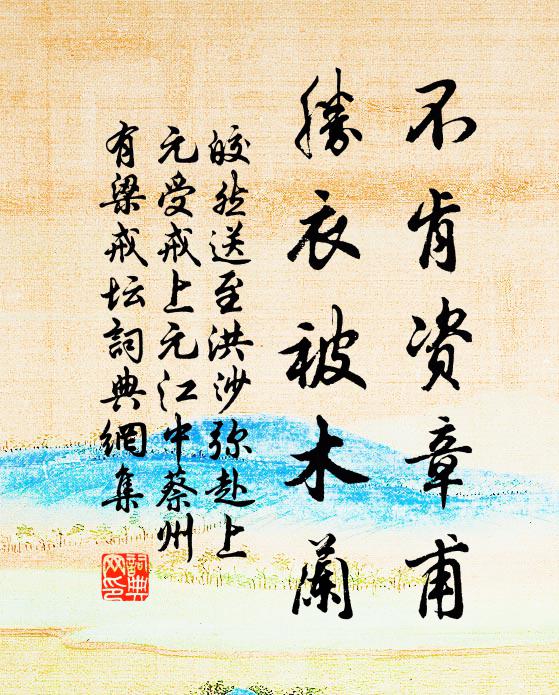 不肯资章甫
勝衣被木蘭
皎然送至洪沙弥赴上
元受戒上元江中蔡州
有梁戒坛詞典網集
詞典網印